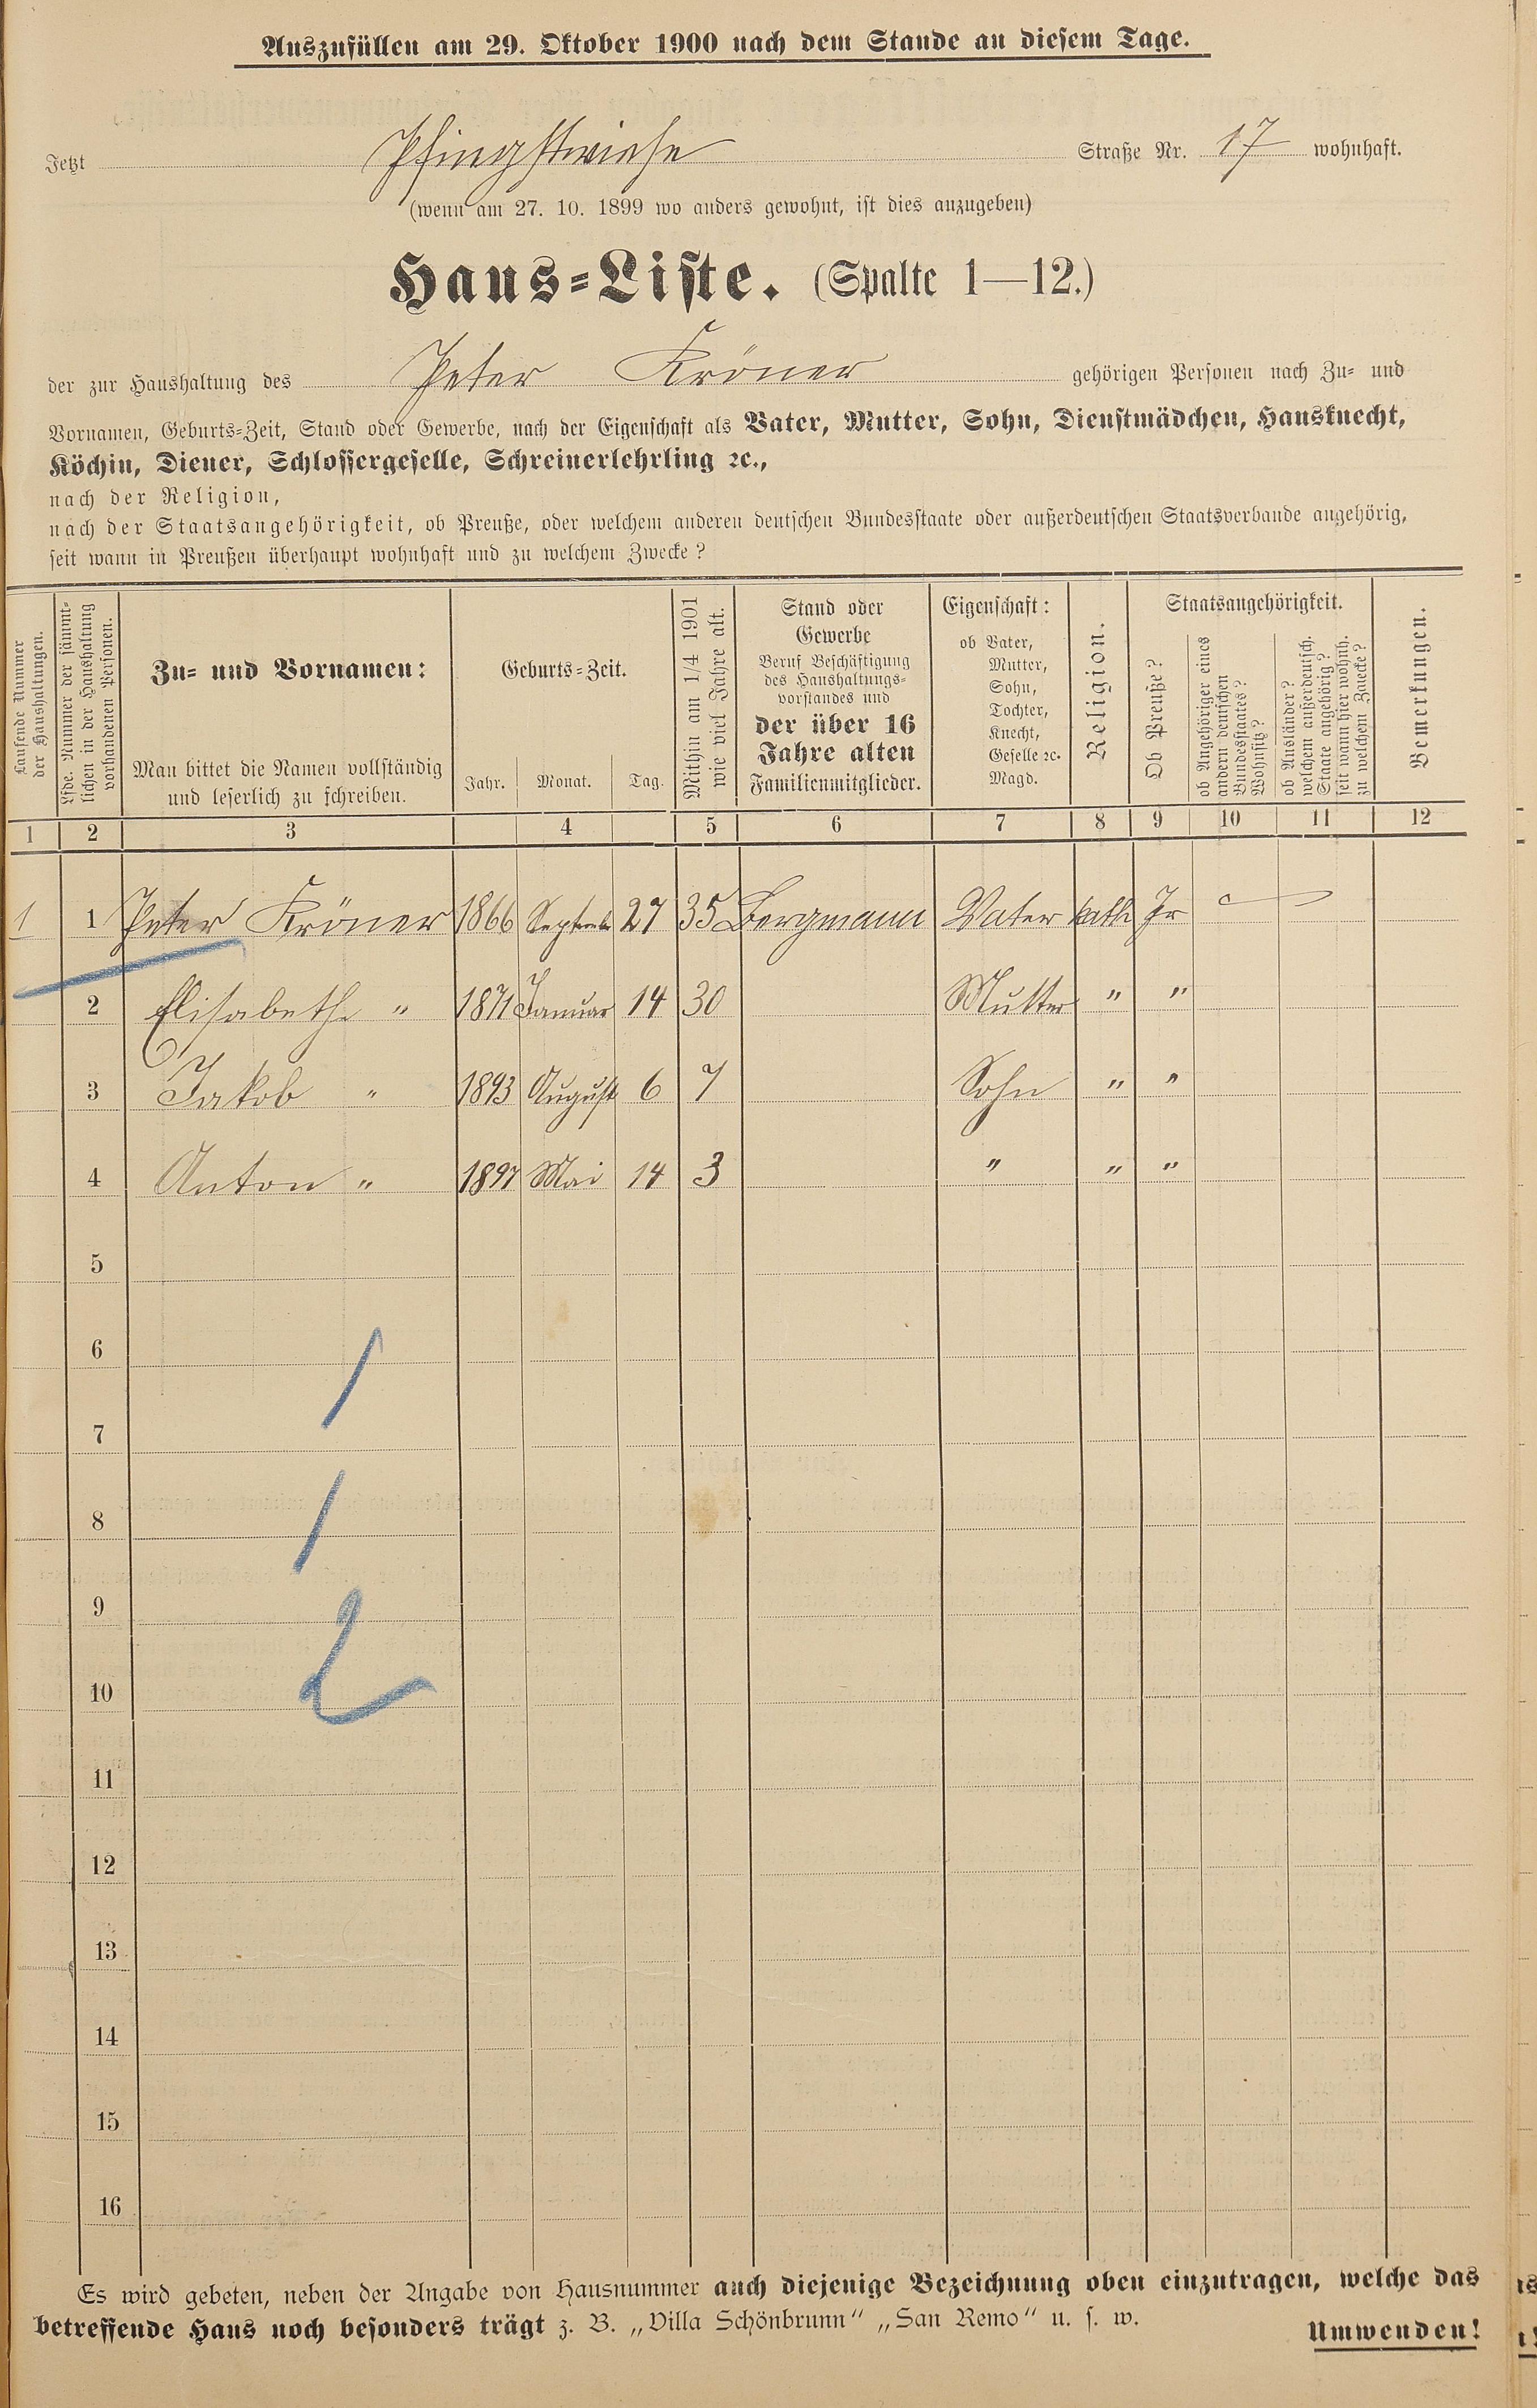 Auszufüllen am 29. Oktober 1900 nach dem Stande an diesem Tage.
Jetzt Pfingstwiese Straße Nr. 17 wohnhaft.
(wenn am 27. 10. 1899 wo anders gewohnt, ist dies anzugeben)
Haus-Liste. (Spalte 1—12.)
der zur Haushaltung des Peter Kröner gehörigen Personen nach Zu- und
Vornamen, Geburts-Zeit, Stand oder Gewerbe, nach der Eigenschaft als Vater, Mutter, Sohn, Dienstmädchen, Hausknecht,
Köchin, Diener, Schlossergeselle, Schreinerlehrling ꝛc.,
nach der Religion,
nach der Staatsangehörigkeit, ob Preuße, oder welchem anderen deutschen Bundesstaate oder außerdeutschen Staatsverbande angehörig,
seit wann in Preußen überhaupt wohnhaft und zu welchem Zwecke?
Laufende Nummer
der Haushaltungen.
Lfde. Nummer der sämmt-
lichen in der Haushaltung
vorhandenen Personen.
Zu- und Vornamen:
Man bittet die Namen vollständig
und leserlich zu schreiben.
Geburts-Zeit.
Jahr. Monat. Tag.
Mithin am 1/4 1901
wie viel Jahre alt.
Stand oder
Gewerbe
Beruf Beschäftigung
des Haushaltungs-
vorstandes und
der über 16
Jahre alten
Familienmitglieder.
Eigenschaft:
ob Vater,
Mutter,
Sohn,
Tochter,
Knecht,
Geselle ꝛc.
Magd.
Religion.
Staatsangehörigkeit.
Ob Preuße?
ob Angehöriger eines
andern deutschen
Bundesstaates?
Wohnsitz?
ob Ausländer?
welchem außerdeutsch.
Staate angehörig?
seit wann hier wohnh.
zu welchem Zwecke?
Bemerkungen.
1 2 3 4 5 6 7 8 9 10 11 12
1 1 Peter Kröner 1866 Septemb 27 35 Bergmann Vater kath
2 Elisabethe " 1871 Januar 14 30 Mutter " "
3 Jakob " 1893 August 6 7 Sohn " "
4 Anton " 1897 Mai 14 3 " " "
5
6
1
7
8
1
9
2
10
11
12
13
14
15
16
Es wird gebeten, neben der Angabe von Hausnummer auch diejenige Bezeichnung oben einzutragen, welche das
betreffende Haus noch besonders trägt z. B. „Villa Schönbrunn“ „San Remo“ u. s. w.
Umwenden!